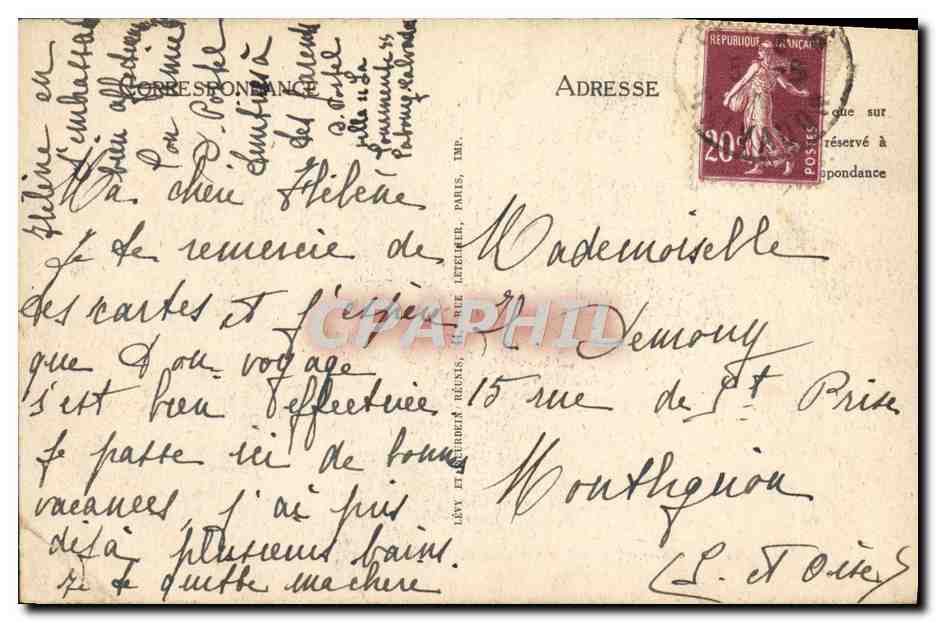 CORRESPONDANCE
Ma chère Hélène
Je te remercie de
tes cartes et j'espère
que ton voyage
s'est bien effectuée
Je passe ici de bonnes
vacances, j'ai pris
déjà plusieurs bains.
Je te quitte ma chère
Hélène en
t'embrassant
bien affectueusement
Ton amie
Poste
ADRESSE
que sur
réservé à
spondance
RÉPUBLIQUE FRANÇAISE
20c
POSTES
Mademoiselle
H. Demony
15 rue de St Prise
Monthignon
(S. et Oise)
LÉVY ET NEURDEIN RÉUNIS, 44, RUE LETELLIER, PARIS, IMP.
CPAPHIL